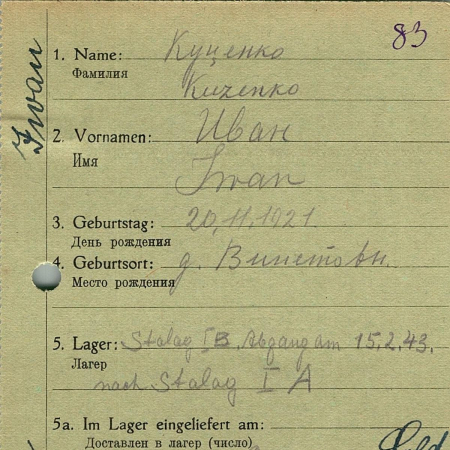 83
Iwan
1. Name: Куценко
Фамилия
Kuzenko
2. Vornamen: Иван
Имя
Iwan
3. Geburtstag: 20.11.1921
День рождения
4. Geburtsort: д.
Место рождения
5. Lager: Stalag IB, Abgang am 15.2.43.
Лагер
nach Stalag I A
5a. Im Lager eingeliefert am:
Доставлен в лагер (число)